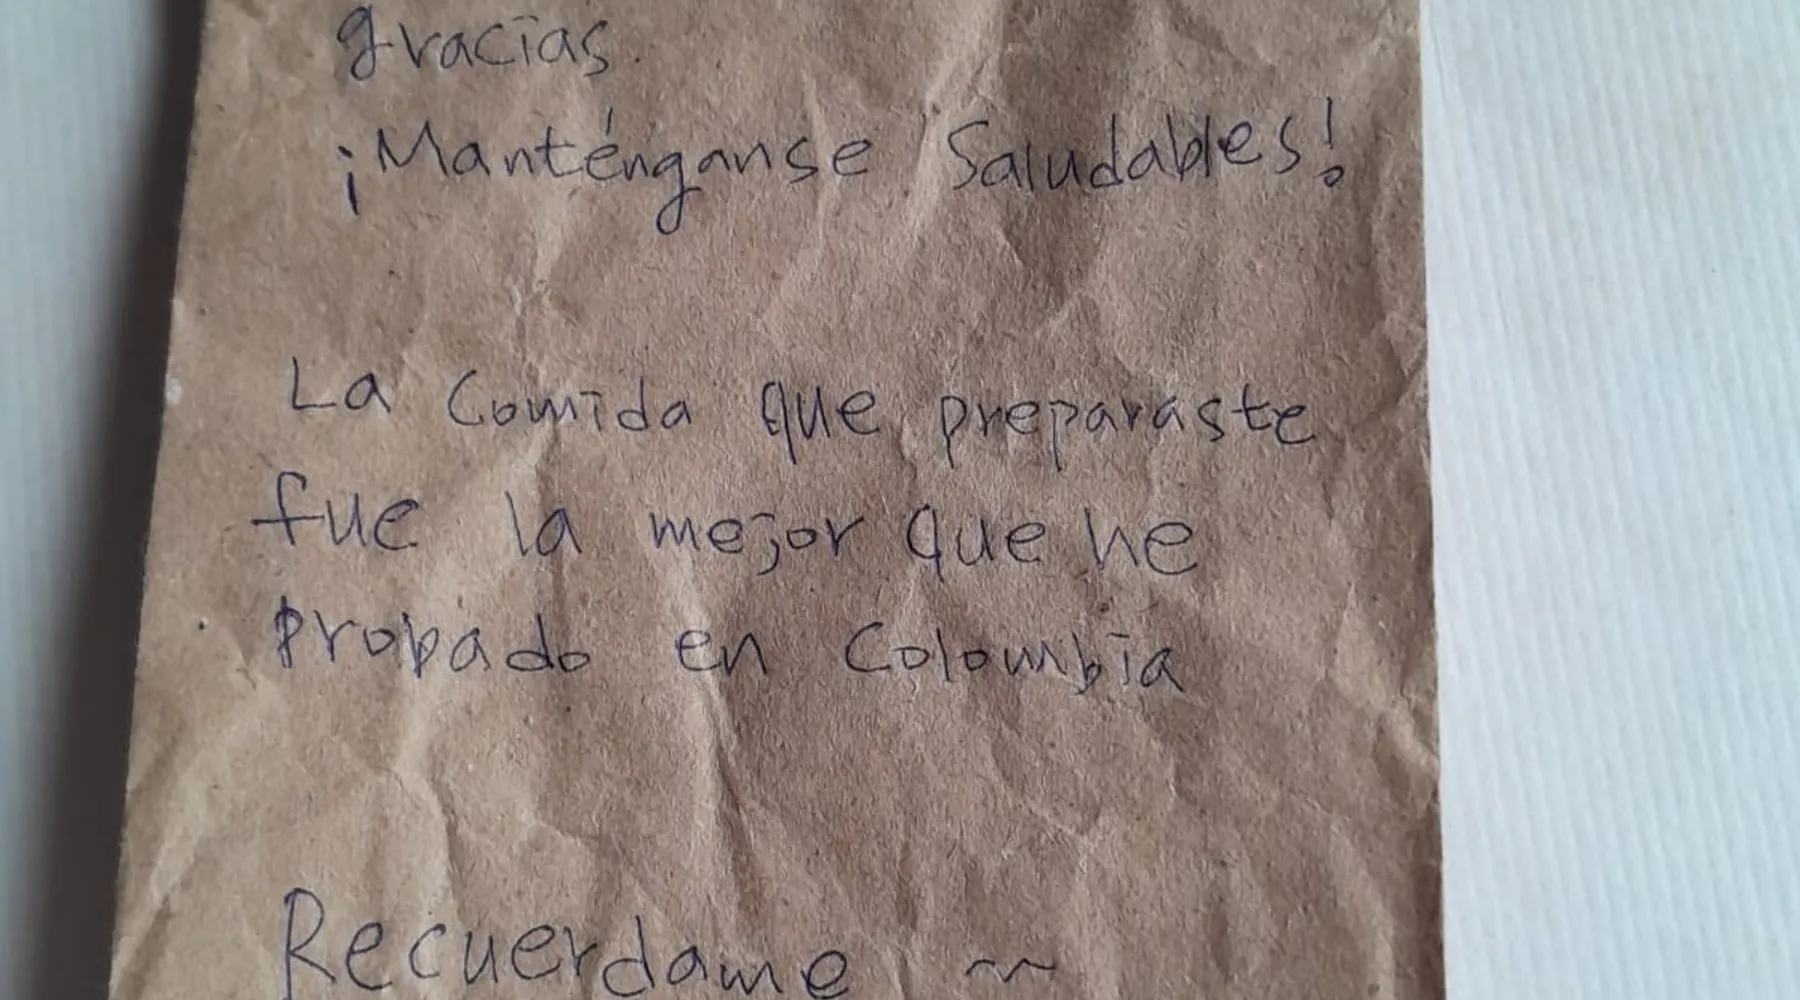 gracias.
¡Manténganse Saludables!
La Comida que preparaste
fue la mejor que he
probado en Colombia
Recuerdame ~~